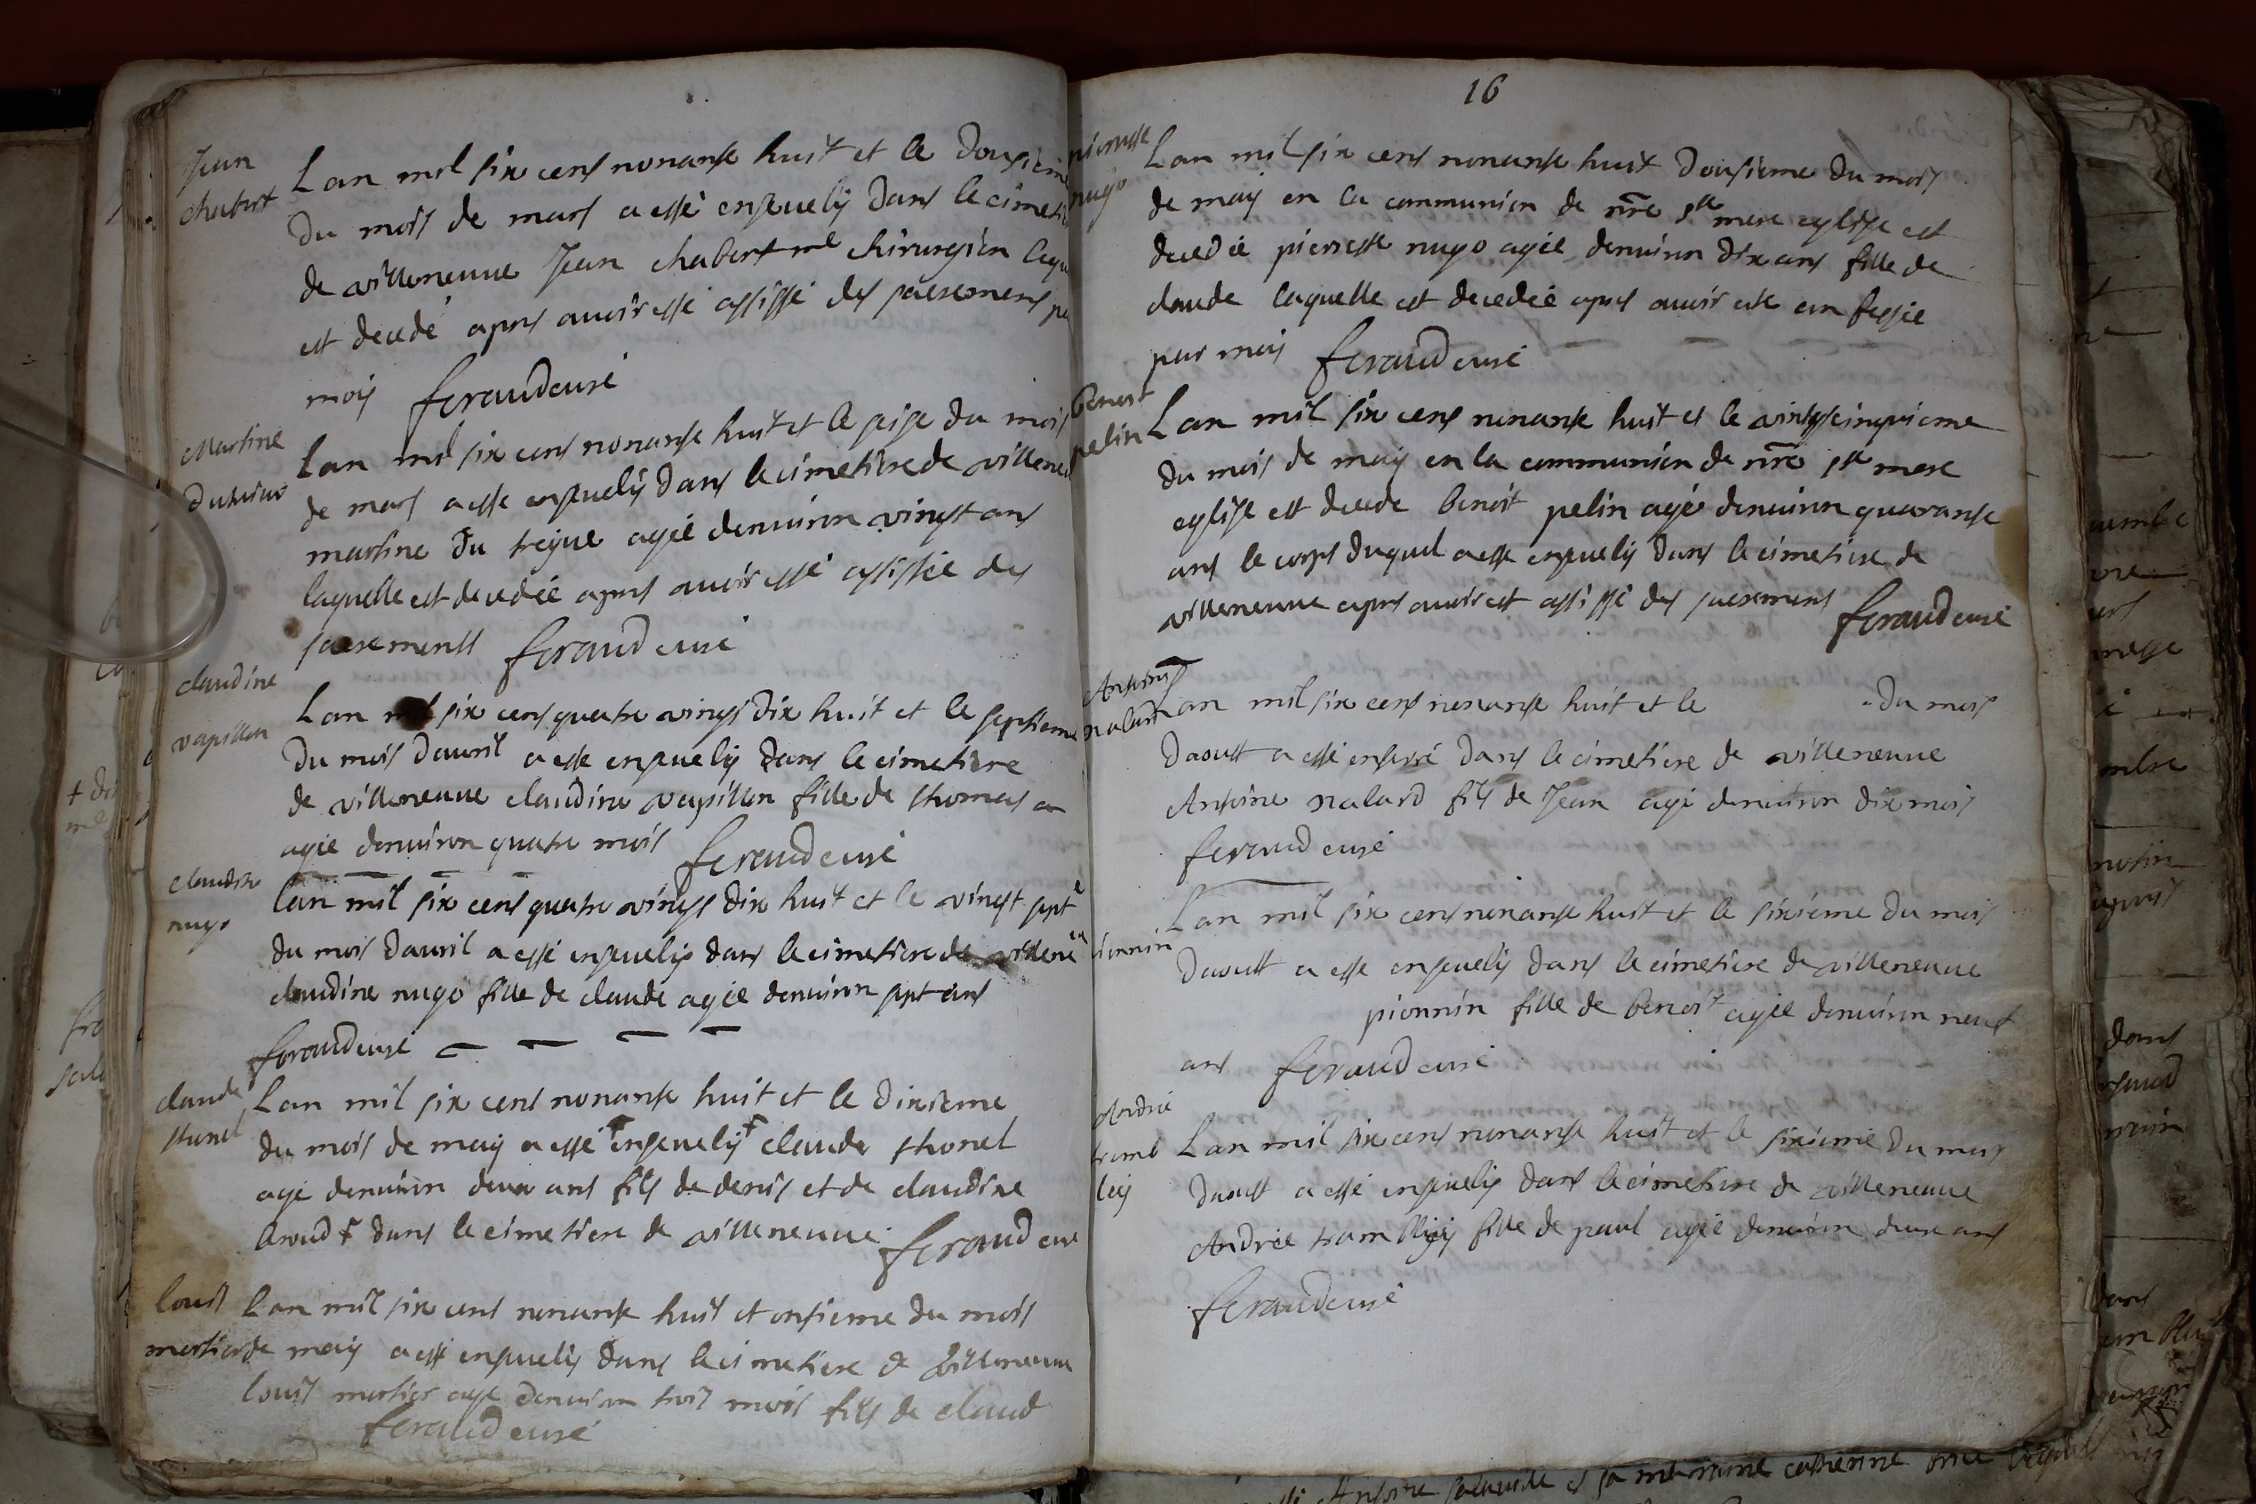 Jean
chabert
Lan mil six cens nonante huit et le dousieme
du mois de mars a esté enseuely dans le cimeti
de villeneuve Jean chabert mre chirurgien lequ
est decedé apres avoir esté assisté des sacremens pa
moy feraud curé
Martine
Lan mil six cens nonante huit et le seise du mois
de mars a esté enseuely dans le cimetiere de villene
martine du treyue agée denuiron vingt ans
laquelle est decedée apres avoir esté assistée des
sacrements feraud curé
claudine
vapillon
Lan mil six cens quatre vings dix huit et le septieme
du mois dauril a esté enseuely dans le cimetiere
de villeneuve claudine vapillon fille de thomas
agée denuiron quatre mois feraud curé
claudine
nugo
lan mil six cens quatre vings dix huit et le vingt sept
du mois dauril a esté enseuely dans le cimetiere de villene
claudine nugo fille de claude agée denuiron sept ans
feraud curé
claude
thonel
Lan mil six cens nonante huit et le dixieme
du mois de may a esté + enseuely + claude thonel
agé denuiron deux ans fils de denis et de claudine
+ dans le cimetiere de villeneuve feraud curé
louis
mortier
Lan mil six cens nonante huit et onsieme du mois
de may a esté enseuely dans le cimetiere de villeneuve
louis mortier agé denuiron trois mois fils de claud
feraud curé
16
pierrette
nugo
Lan mil six cens nonante huit dousieme du mois
de may en la communion de nre ste mere eglise est
decedée pierrette nugo agée denuiron dix ans fille de
claude laquelle est decedée apres avoir esté confessée
par moy feraud curé
benoit
pelin
Lan mil six cens nonante huit et le vintgtcinquieme
du mois de may en la communion de nre ste mere
eglise est decede benoit pelin agé denuiron quarante
ans le corps duquel a esté enseuely dans le cimetiere de
villeneuve apres avoir est assisté des sacremens feraud curé
Antoine
nalard
Lan mil six cens nonante huit et le du mois
daoust a esté enterré dans le cimetiere de villeneuve
Antoine nalard fils de Jean agé denuiron dix mois
feraud curé
pionnin
Lan mil six cens nonante huit et le sixieme du mois
daoust a esté enseuely dans le cimetiere de villeneuve
pionnin fille de benoit agée denuiron neuf
ans feraud curé
Andrée
tramb
ley
Lan mil six cens nonante huit et le sixieme du mois
daoust a esté enseuely dans le cimetiere de villeneuve
Andrée tramblley fille de paul agée denuiron deux ans
feraud curé